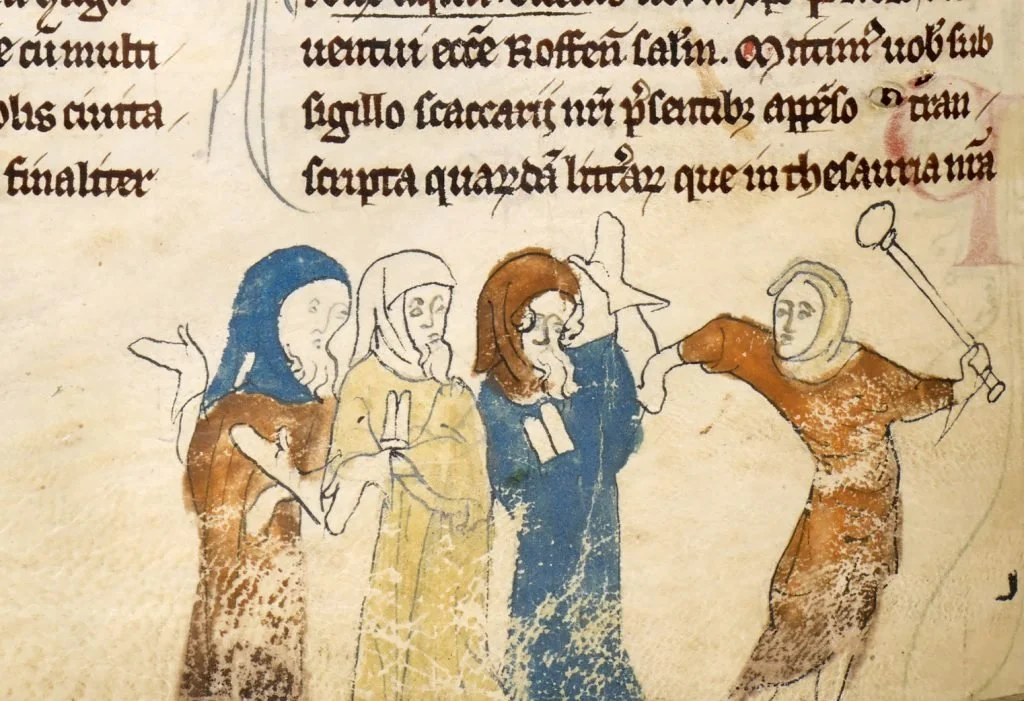 e cū multi
olis ciuita/
finaliter
uentui ecc̄e Roffen̄ salm̄. Mittimꝰ uob̄ sub
sigillo scaccarij nr̄i p̄sentibꝫ app̄eso tran/
scripta quaꝝdā litt̾aꝝ que in thesauria nr̄a